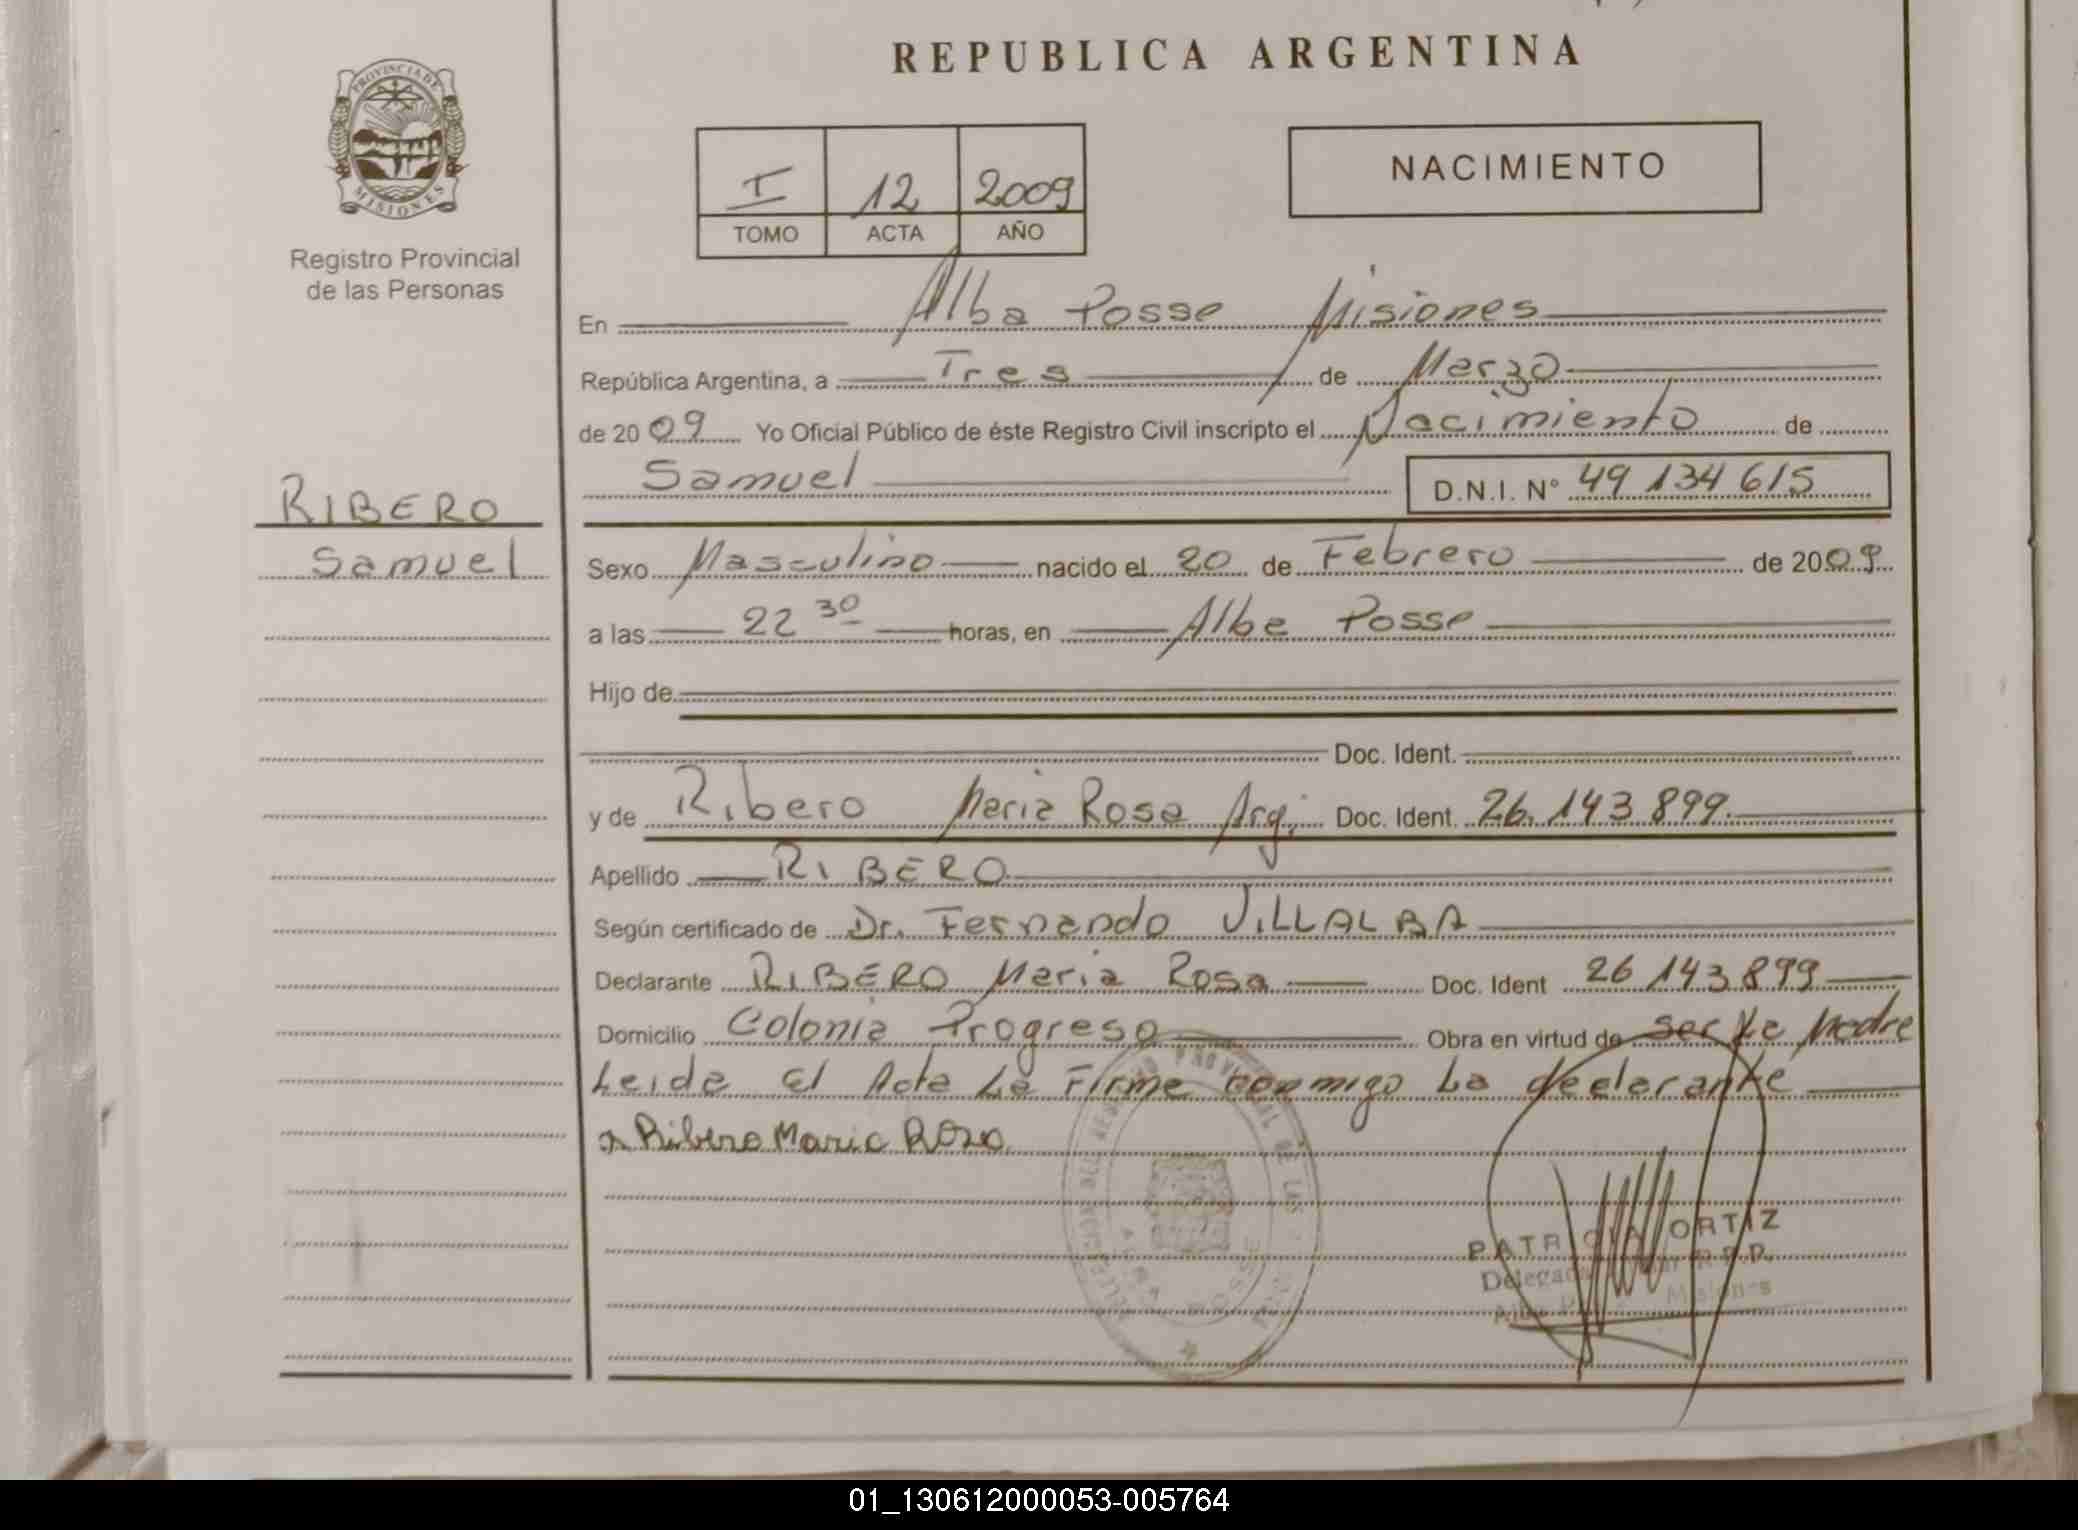 REPUBLICA ARGENTINA
PROVINCIA DE
MISIONES
Registro Provincial
de las Personas
I 12 2009
TOMO ACTA AÑO
NACIMIENTO
En Alba Posse Misiones
República Argentina, a Tres de Marzo
de 2009 Yo Oficial Público de éste Registro Civil inscripto el Nacimiento de
Samuel D.N.I. N° 49 134 615
RIBERO
Samuel
Sexo Masculino nacido el 20 de Febrero de 2009
a las 22 30 horas, en Alba Posse
Hijo de
Doc. Ident.
y de Ribero Maria Rosa Arg. Doc. Ident. 26.143.899.
Apellido RIBERO
Según certificado de Dr. Fernando VILLALBA
Declarante RIBERO Maria Rosa Doc. Ident 26 143 899
Domicilio Colonia Progreso Obra en virtud de ser La Madre
Leida el Acta La Firma conmigo La declarante
Ribero Maria Rosa
PATRICIA ORTIZ
Misiones
01_130612000053-005764